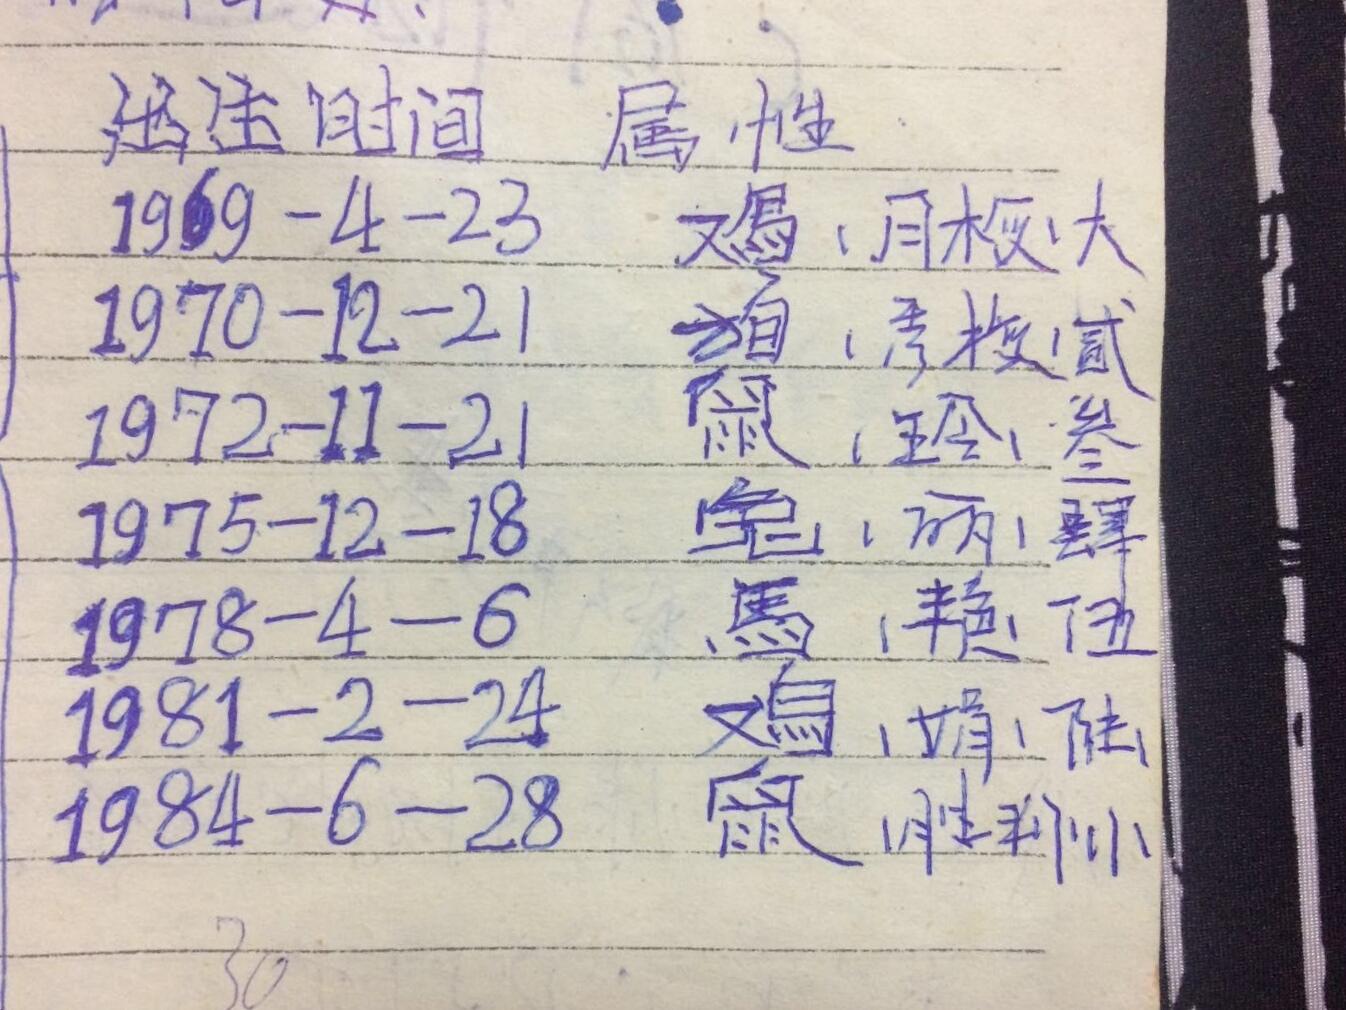 出生时间 属性
1969-4-23 鸡、月板、大
1970-12-21 狗、秀板、贰
1972-11-21 鼠、玲、叁
1975-12-18 兔、丽、肆
1978-4-6 馬、艳、伍
1981-2-24 鸡、娟、陆
1984-6-28 鼠、胜利、小
30